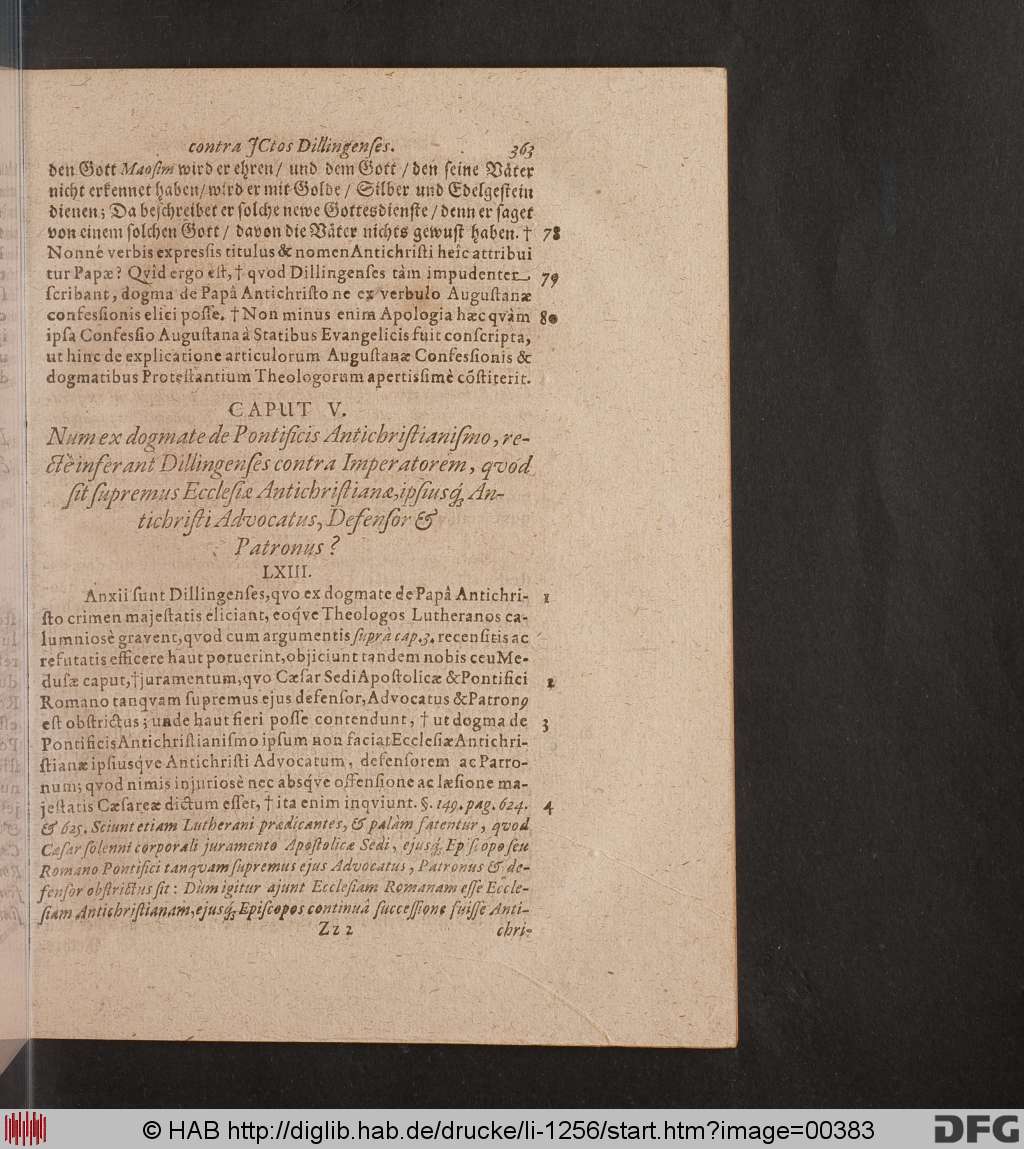 contra JCtos Dillingenſes. 363
den Gott Maoſim wird er ehren / und dem Gott / den ſeine Väter
nicht erkennet haben / wird er mit Golde / Silber und Edelgeſtein
dienen; Da beſchreibet er ſolche newe Gottesdienſte / denn er ſaget
von einem ſolchen Gott / davon die Väter nichts gewuſt haben. † 78
Nonnè verbis expreſsis titulus & nomen Antichriſti heîc attribui
tur Papæ? Qvîd ergo eſt, † qvod Dillingenſes tàm impudenter 79
ſcribant, dogma de Papâ Antichriſto ne ex verbulo Auguſtanæ
confeſsionis elici poſſe. † Non minus enim Apologia hæc qvàm 80
ipſa Confeſsio Auguſtana à Statibus Evangelicis fuit conſcripta,
ut hinc de explicatione articulorum Auguſtanæ Confeſsionis &
dogmatibus Proteſtantium Theologorum apertiſsimè cõſtiterit.
CAPUT V.
Num ex dogmate de Pontificis Antichriſtianiſmo, re-
ctè inferant Dillingenſes contra Imperatorem, qvod
ſit ſupremus Eccleſiæ Antichriſtianæ, ipſiusq́; An-
tichriſti Advocatus, Defenſor &
Patronus?
LXIII.
Anxii ſunt Dillingenſes, qvo ex dogmate de Papâ Antichri- 1
ſto crimen majeſtatis eliciant, eoqve Theologos Lutheranos ca-
lumniosè gravent, qvod cum argumentis ſuprà cap. 3. recenſitis ac
refutatis efficere haut potuerint, objiciunt tandem nobis ceu Me-
duſæ caput, † juramentum, qvo Cæſar Sedi Apoſtolicæ & Pontifici 2
Romano tanqvam ſupremus ejus defenſor, Advocatus & Patronꝰ
eſt obſtrictus; unde haut fieri poſſe contendunt, † ut dogma de 3
Pontificis Antichriſtianiſmo ipſum non faciat Eccleſiæ Antichri-
ſtianæ ipſiusqve Antichriſti Advocatum, defenſorem ac Patro-
num; qvod nimis injuriosè nec absqve offenſione ac læſione ma-
jeſtatis Cæſareæ dictum eſſet, † ita enim inqviunt. §. 149. pag. 624. 4
& 625. Sciunt etiam Lutherani prædicantes, & palàm fatentur, qvod
Cæſar ſolenni corporali juramento Apoſtolicæ Sedi, ejusq́; Epiſcopo ſeu
Romano Pontifici tanqvam ſupremus ejus Advocatus, Patronus & de-
fenſor obſtrictus ſit: Dùm igitur ajunt Eccleſiam Romanam eſſe Eccle-
ſiam Antichriſtianam, ejusq́; Epiſcopos continuâ ſucceſſione fuiſſe Anti-
Zz 2 chri-
© HAB http://diglib.hab.de/drucke/li-1256/start.htm?image=00383
DFG